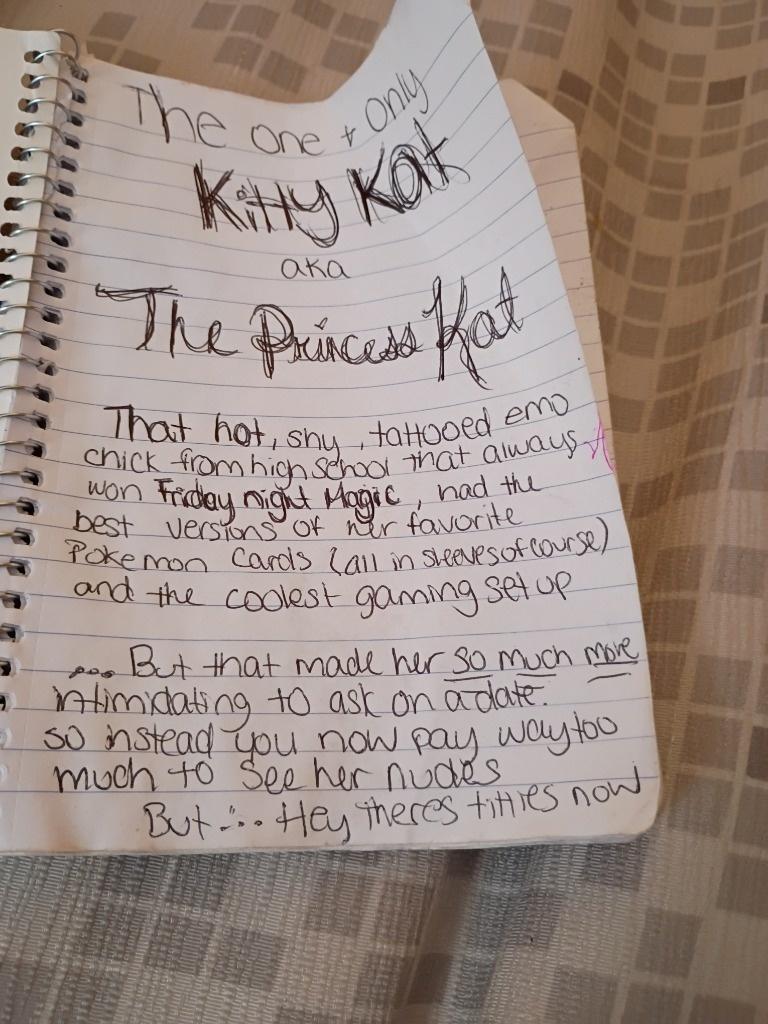 The one + only
Kitty Kat
aka
The Princess Kat
That hot, shy, tattooed emo
chick from high school that always
won Friday night Magic, had the
best versions of her favorite
Pokemon Cards (all in sleeves of course)
and the coolest gaming set up
.... But that made her so much more
intimidating to ask on a date.
so instead you now pay way too
much to see her nudes
But .... Hey theres titties now